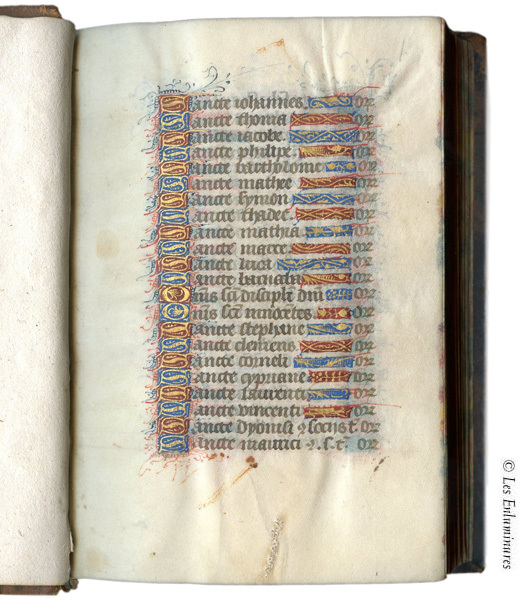 Sancte iohannes. Or̃
Sancte thoma Or̃
Sancte iacobe. Or̃
Sancte philipe. Or̃
Sancte bartholome Or̃
Sancte mathee Or̃
Sancte symon. Or̃
Sancte thadee. Or̃
Sancte mathia Or̃
Sancte marce Or̃
Sancte luca Or̃
Sancte barnaba Or̃
Om̃s sc̃i discipli dñi Or̃
Om̃s sc̃i innocẽtes Or̃
Sancte stephane Or̃
Sancte clemens Or̃
Sancte corneli Or̃
Sancte cypriane Or̃
Sancte laurenti Or̃
Sancte vincenti Or̃
Sancte dyonisi ⁊ socus t̃. Or̃
Sancte maurici ⁊. s. t̃. Or̃
© Les Enluminures